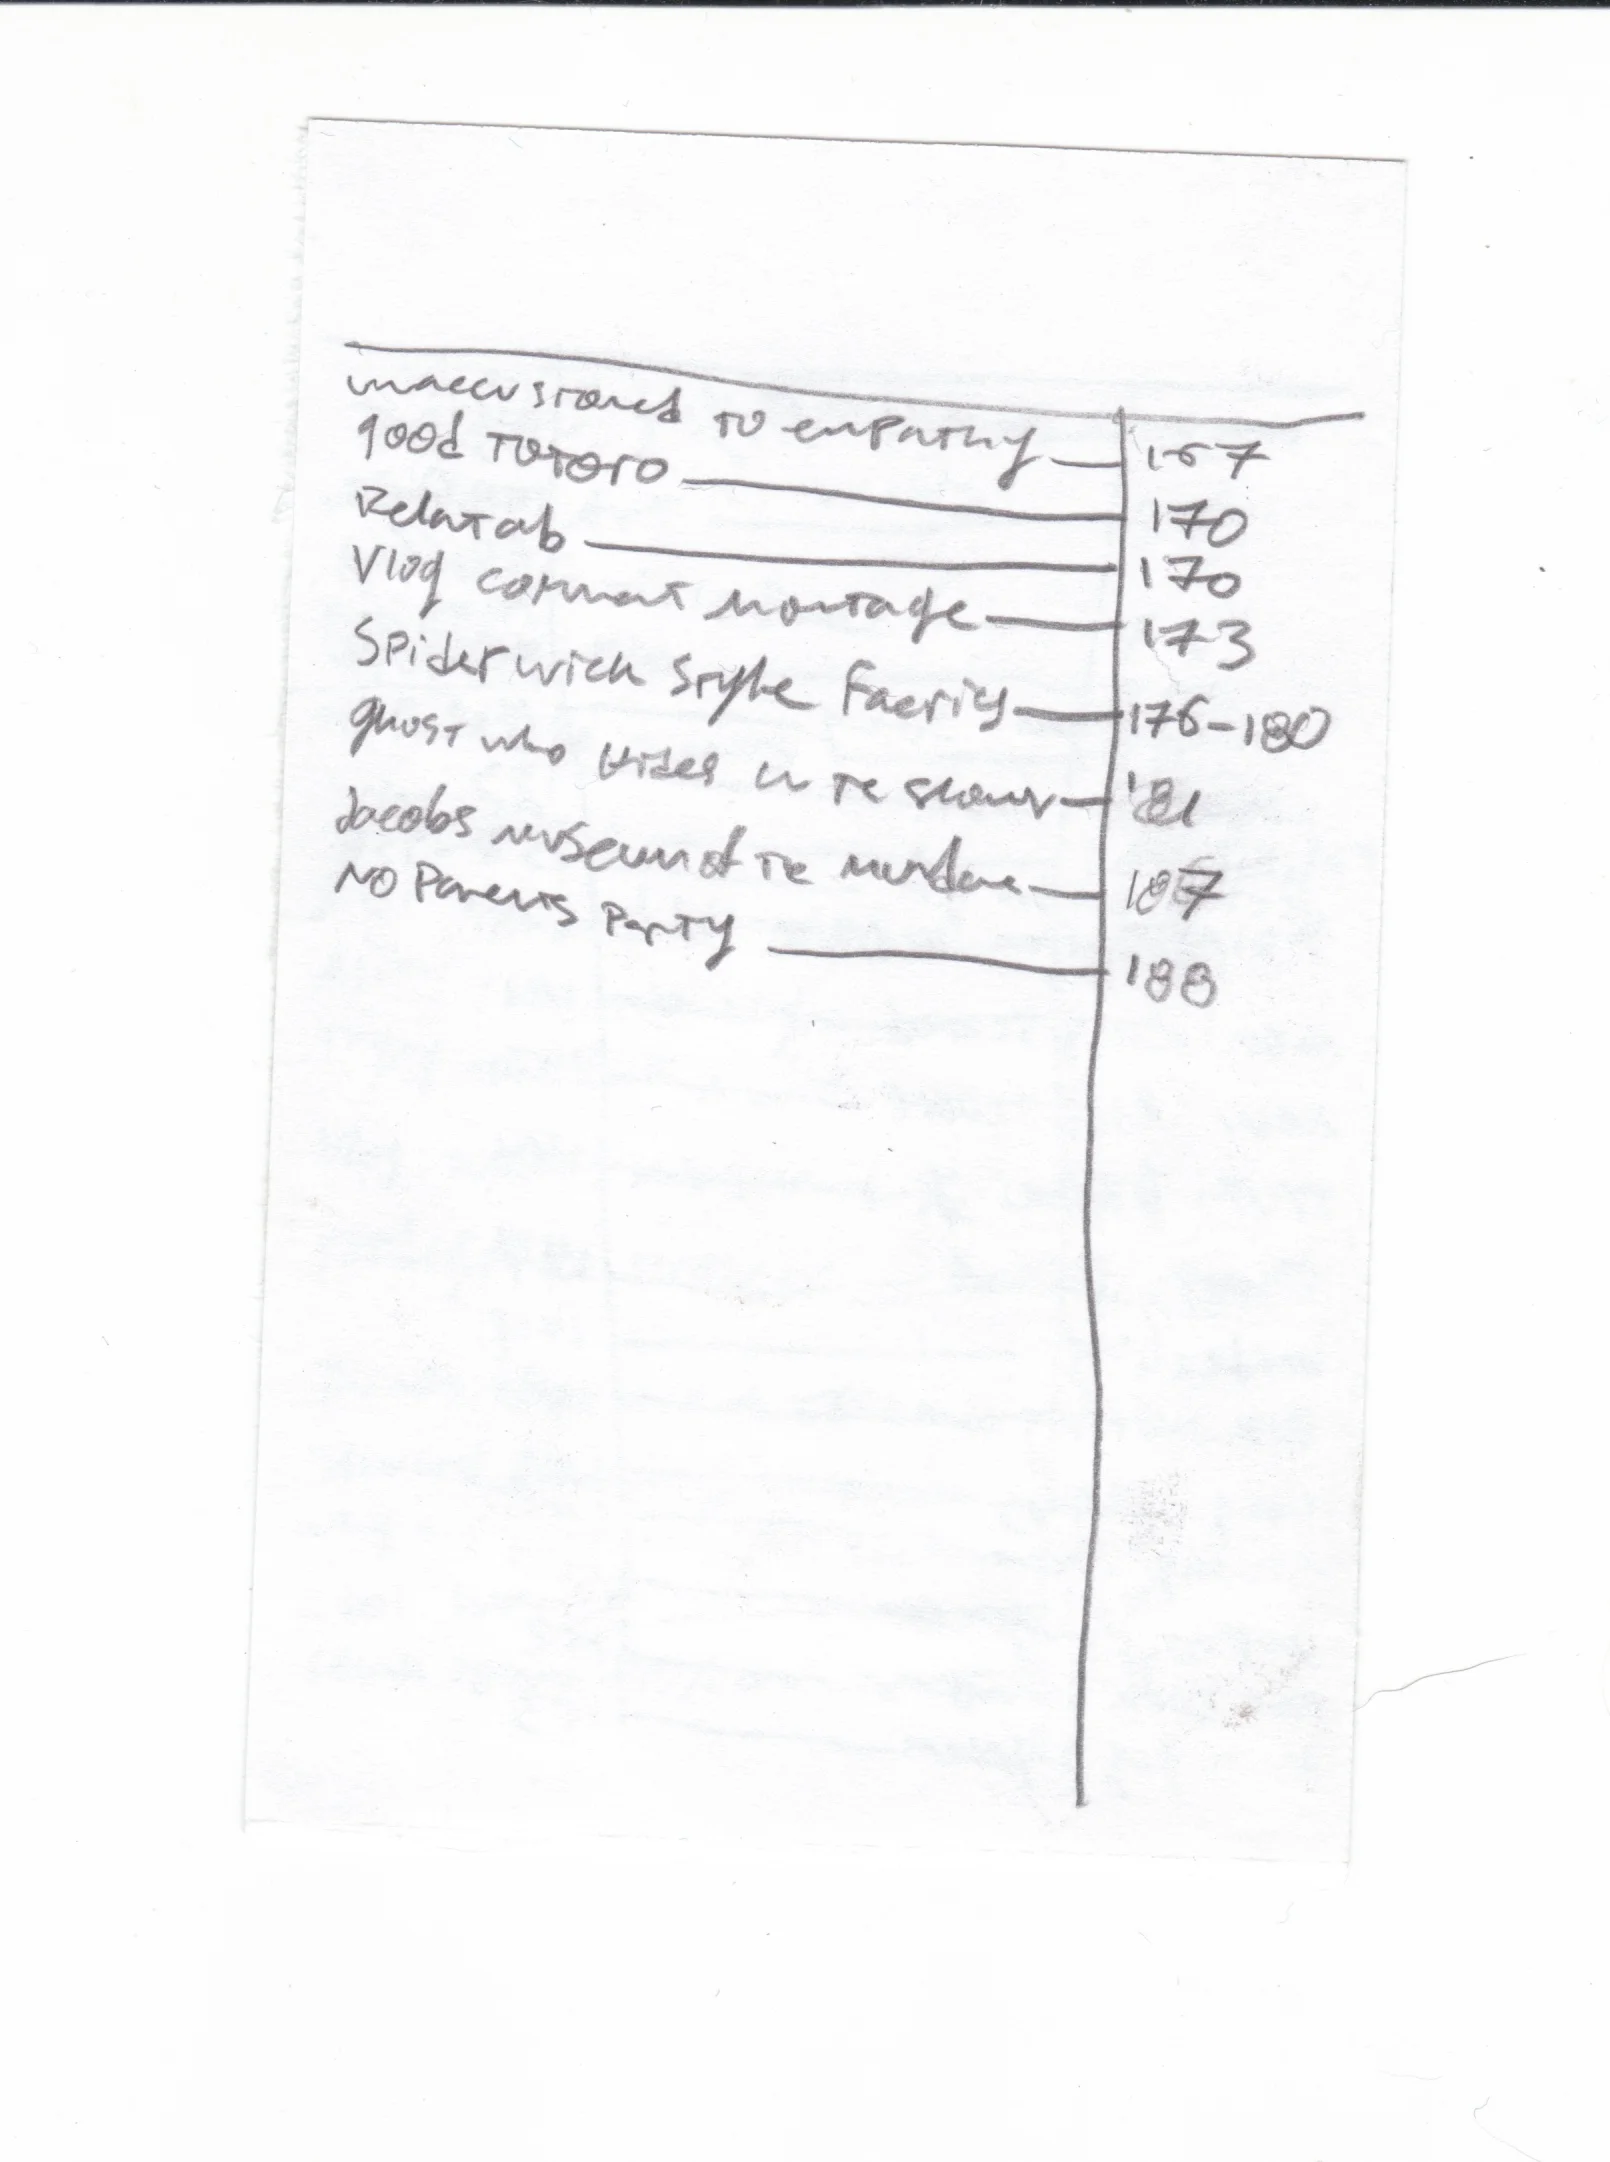 unaccustomed to empathy — 167
good totoro — 170
Relatab — 170
Vlog format montage — 173
Spiderwick Style Faeries — 176-180
ghost who Hides in te shower — 181
Jacobs museum of te mundane — 187
NO Parents Party — 188